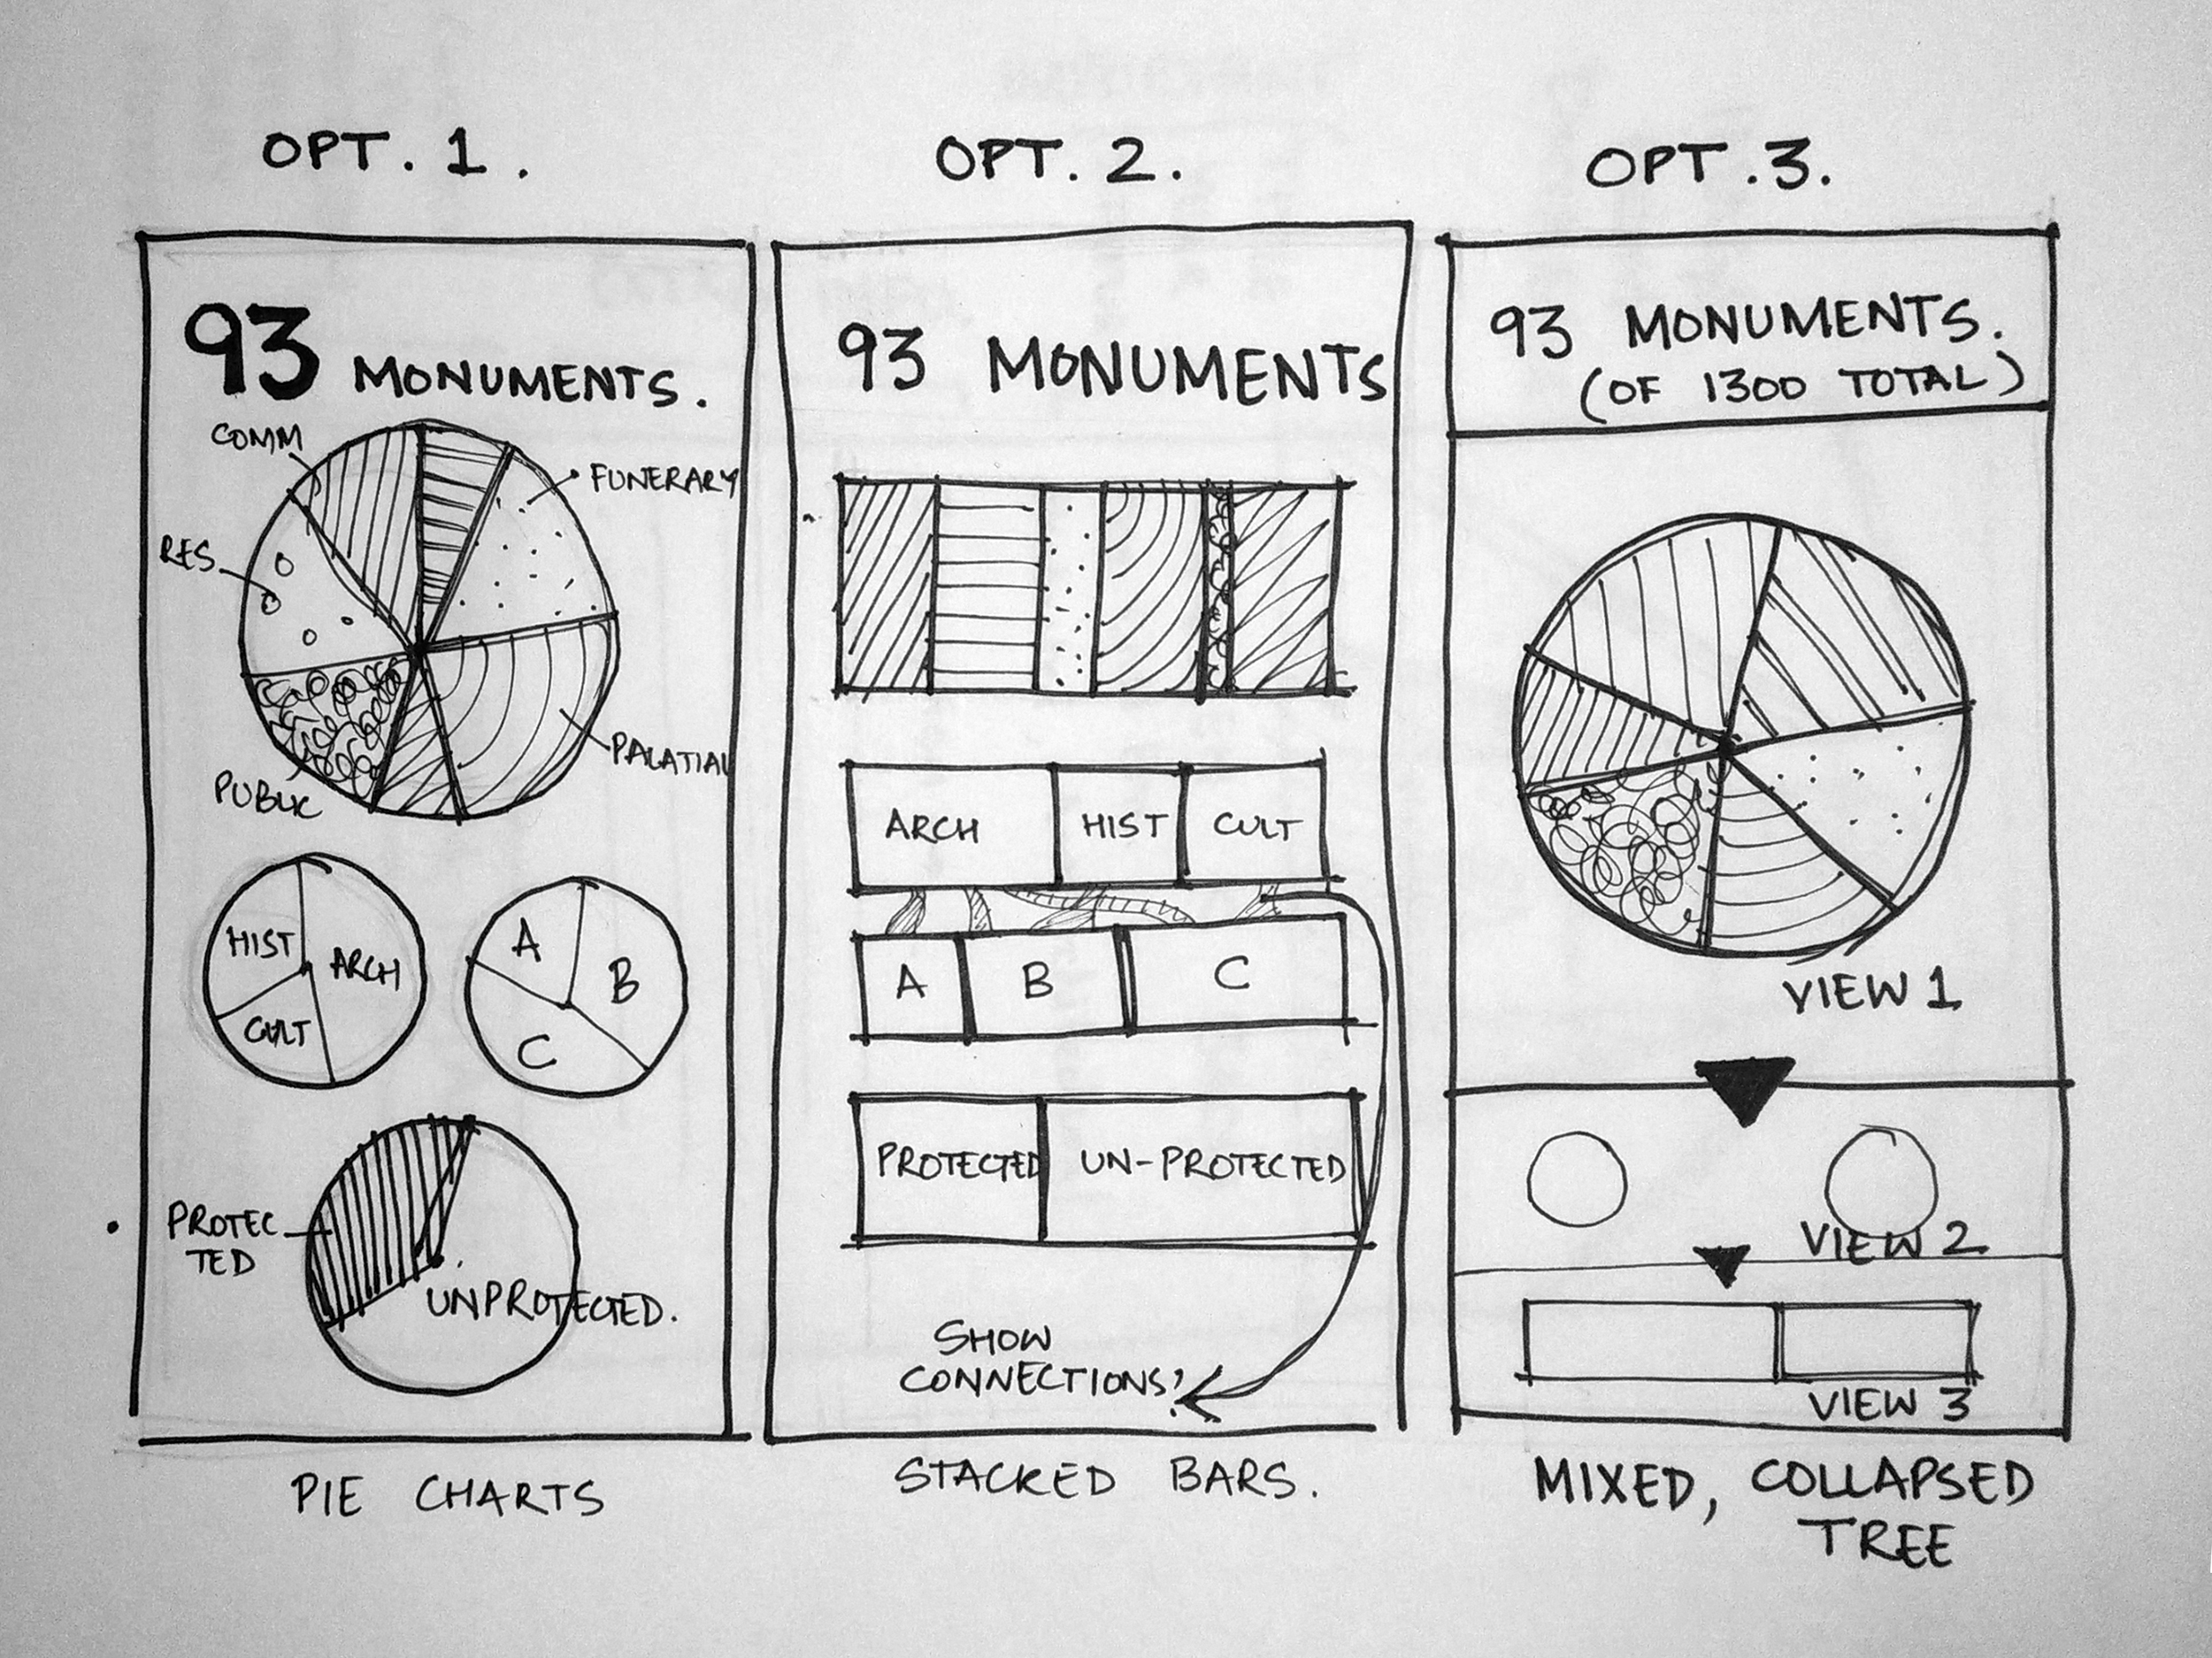 OPT. 1.
93 MONUMENTS.
COMM
FUNERARY
RES
PALATIAL
PUBLIC
HIST
ARCH
CULT
A
B
C
PROTEC
TED
UNPROTECTED.
PIE CHARTS
OPT. 2.
93 MONUMENTS
ARCH
HIST
CULT
A
B
C
PROTECTED
UN-PROTECTED
SHOW
CONNECTIONS?
STACKED BARS.
OPT.3.
93 MONUMENTS.
(OF 1300 TOTAL)
VIEW 1
VIEW 2
VIEW 3
MIXED, COLLAPSED
TREE